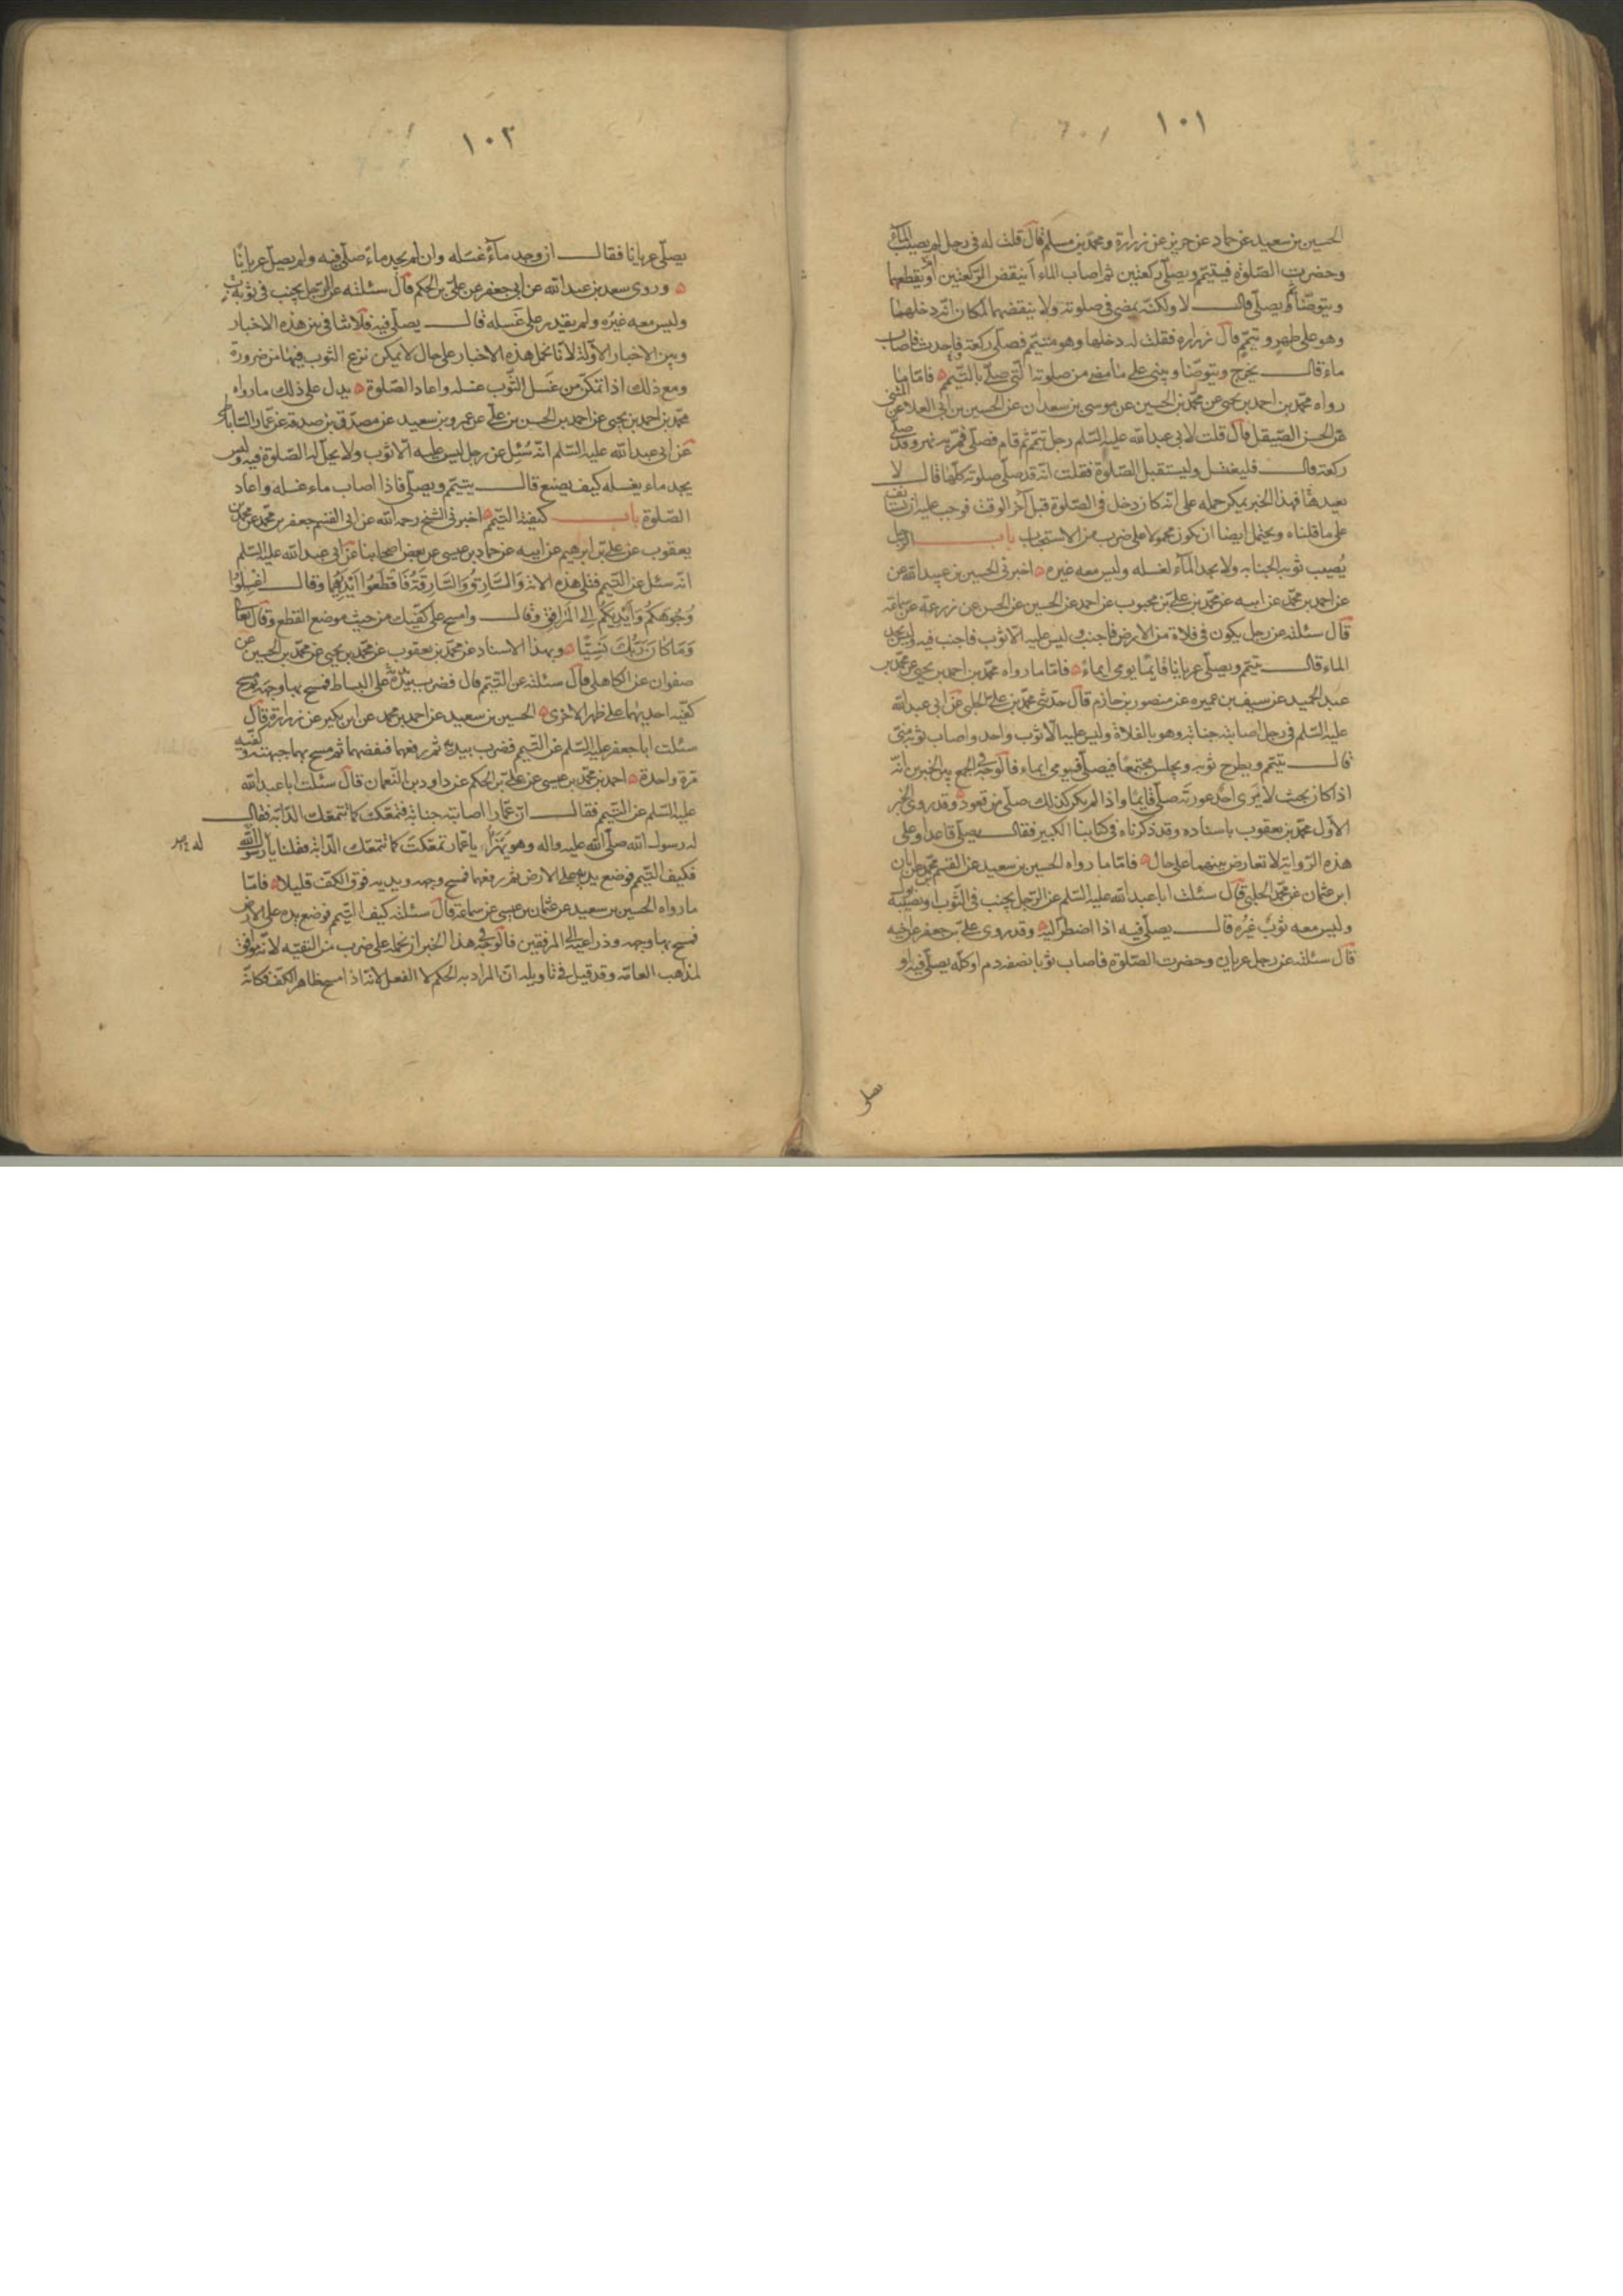 ١٠١
الحسين بن سعيد عن حماد عن حريز عن زرارة ومحمد بن مسلم قال قلت له في رجل لم يصب الماء
وحضرت الصلوة فيتيمم ويصلي ركعتين ثم اصاب الماء أينقض الركعتين أو يقطعهما
ويتوضأ ثم يصلي قال لا ولكنه يمضى في صلوته ولا ينقضهما لمكان انه دخلها
وهو على طهر وتيمم قال زرارة فقلت له دخلها وهو متيمم فصلى ركعة فاحدث فاصاب
ماء قال يخرج ويتوضأ ويبنى على ما مضى من صلوته التي صلى بالتيمم فاما ما
رواه محمد بن احمد بن يحيى عن محمد بن الحسين عن موسى بن سعدان عن الحسين بن ابي العلا عن المثنى
عن الحسن الصيقل قال قلت لابي عبدالله عليه السلم رجل تيمم ثم قام فصلى فمر به نهر وقد صلى
ركعة قال فليغتسل وليستقبل الصلوة فقلت انه قد صلى صلوته كلها قال لا
يعيد فهذا الخبر يمكن حمله على انه كان دخل في الصلوة قبل آخر الوقت فوجب عليه ان يستانف
على ما قلناه ويحتمل ايضا ان يكون محمولا على ضرب من الاستحباب باب الرجل
يصيب ثوبه الجنابه ولا يجد الماء لغسله وليس معه غيره اخبرني الحسين بن عبيد الله عن
عن احمد بن محمد عن ابيه عن محمد بن علي بن محبوب عن احمد عن الحسين عن الحسن عن زرعة عن سماعة
قال سئلته عن رجل يكون في فلاة من الارض فاجنب وليس عليه الا ثوب فاجنب فيه وليس يجد
الماء قال يتيمم ويصلي عريانا قائما يومى ايماء فاما ما رواه محمد بن احمد بن يحيى عن محمد بن
عبد الحميد عن سيف بن عميره عن منصور بن حازم قال حدثني محمد بن علي الحلبي عن ابي عبد الله
عليه السلم في رجل اصابته جنابة وهو بالفلاة وليس عليه الا ثوب واحد واصاب ثوبه مني
قال يتيمم ويطرح ثوبه ويجلس مجتمعا فيصلي فيومي ايماء فالوجه في الجمع بين الخبرين انه
اذا كان بحيث لا يرى احد عورته صلى قائما واذا لم يكن كذلك صلى من قعود وقد روى الخبر
الاول محمد بن يعقوب باسناده وقد ذكرناه في كتابنا الكبير فقال يصلي قاعدا وعلى
هذه الرواية لا تعارض بينهما على حال فاما ما رواه الحسين بن سعيد عن القسم بن محمد عن ابان
ابن عثمان عن محمد الحلبي قال سئلت ابا عبدالله عليه السلم عن الرجل يجنب في الثوب او يصيبه بول
وليس معه ثوب غيره قال يصلي فيه اذا اضطر اليه وقد روى علي بن جعفر عن اخيه
قال سئلته عن رجل عريان وحضرت الصلوة فاصاب ثوبا نصفه دم او كله يصلي فيه او
يصلى
١٠٢
يصلي عريانا فقال ان وجد ماء غسله وان لم يجد ماء صلى فيه ولم يصل عريانا
وروى سعد بن عبد الله عن ابي جعفر عن علي بن الحكم قال سئلته عن الرجل يجنب في ثوبه
وليس معه غيره ولم يقدر على غسله قال يصلي فيه فلا تنافي بين هذه الاخبار
وبين الاخبار الاولة لانا نحمل هذه الاخبار على حال لا يمكن نزع الثوب فيها من ضرورة
ومع ذلك اذا تمكن من غسل الثوب غسله واعاد الصلوة يدل على ذلك ما رواه
محمد بن احمد بن يحيى عن احمد بن الحسن بن علي عن عمرو بن سعيد عن مصدق بن صدقة عن عمار الساباطي
عن ابي عبد الله عليه السلم انه سئل عن رجل ليس عليه الا ثوب ولا يحل له الصلوة فيه وليس
يجد ماء يغسله كيف يصنع قال يتيمم ويصلي فاذا اصاب ماء غسله واعاد
الصلوة باب كيفية التيمم اخبرني الشيخ رحمه الله عن ابي القسم جعفر بن محمد عن محمد بن
يعقوب عن علي بن ابرهيم عن ابيه عن حماد بن عيسى عن بعض اصحابنا عن ابي عبد الله عليه السلم
انه سئل عن التيمم فتلى هذه الاية والسارق والسارقة فاقطعوا ايديهما وقال اغسلوا
وجوهكم وايديكم الى المرافق وقال وامسح على كفيك من حيث موضع القطع وقال تعا
وما كان ربك نسيا وبهذا الاسناد عن محمد بن يعقوب عن محمد بن يحيى عن محمد بن الحسين عن
صفوان عن الكاهلي قال سئلته عن التيمم قال فضرب بيده على البساط فمسح بها وجهه ثم مسح
كفيه احديهما على ظهر الاخرى الحسين بن سعيد عن احمد بن محمد عن ابن بكير عن زرارة قال
سئلت ابا جعفر عليه السلم عن التيمم فضرب بيديه ثم رفعها فنفضها ثم مسح بهما جبهته وكفيه
مرة واحدة احمد بن محمد بن عيسى عن علي بن الحكم عن داود بن النعمان قال سئلت ابا عبد الله
عليه السلم عن التيمم فقال ان عمارا اصابته جنابة فتمعك كما تتمعك الدابة فقال
له رسول الله صلى الله عليه واله وهو يهزأ يا عمار تمعكت كما تتمعك الدابة فقلنا يا رسول الله
فكيف التيمم فوضع يديه على الارض ثم رفعها فمسح وجهه ويديه فوق الكف قليلا فاما
ما رواه الحسين بن سعيد عن عثمان بن عيسى عن سماعة قال سئلته كيف التيمم فوضع يده على الارض
فمسح بها وجهه وذراعيه الى المرفقين فالوجه في هذا الخبر ان نحمله على ضرب من التقيه لانه موافق
لمذاهب العامه وقد قيل في تاويله ان المراد به الحكم لا الفعل لانه اذا مسح ظاهر الكف فكانه